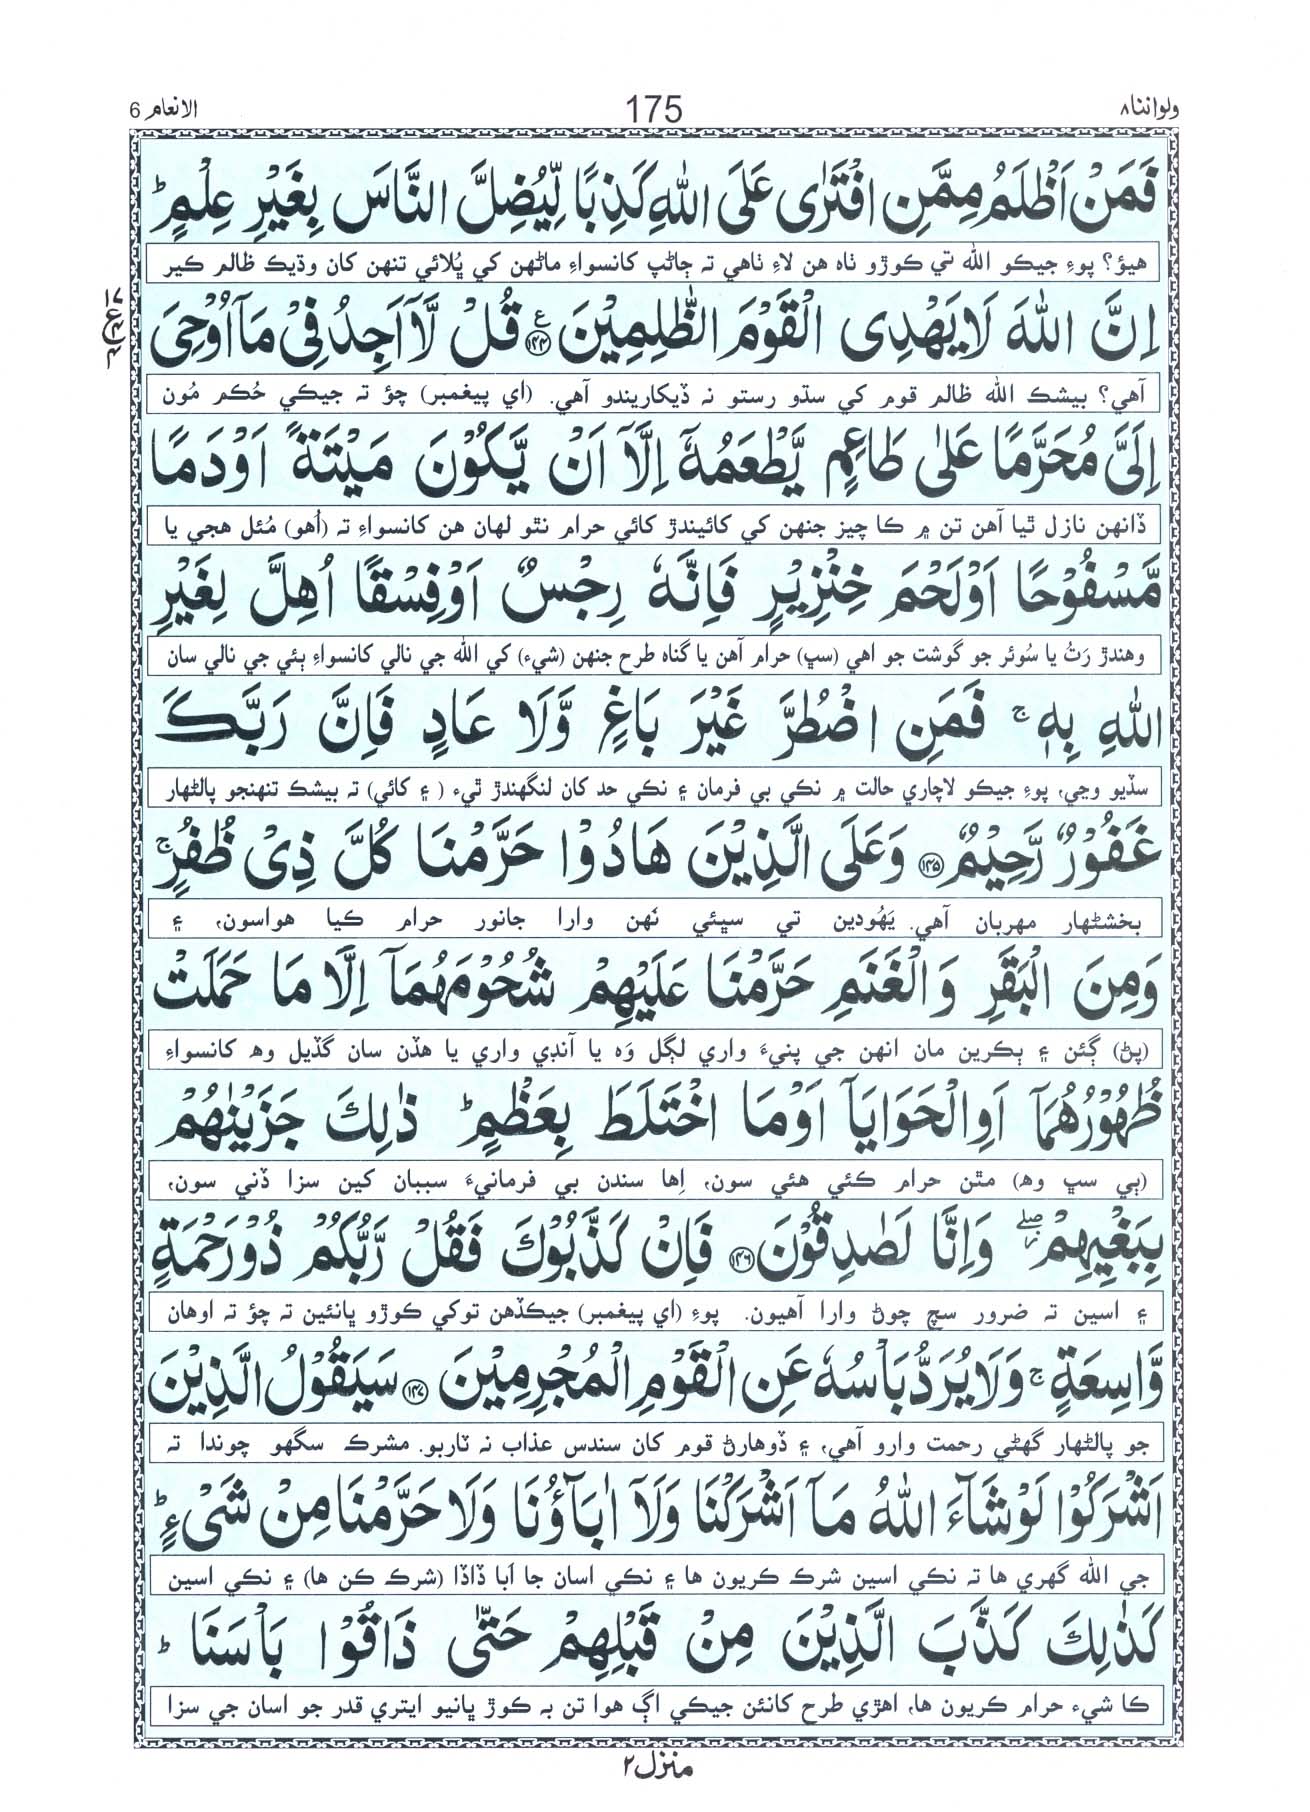 ولواننا ٨ 175 الانعام 6
فَمَنْ اَظْلَمُ مِمَّنِ افْتَرٰى عَلَى اللّٰهِ كَذِبًا لِّيُضِلَّ النَّاسَ بِغَيْرِ عِلْمٍ ؕ
هيؤ؟ پوءِ جيڪو الله تي ڪوڙو ٺاه هن لاءِ ٺاهي ته ڄاڻپ کانسواءِ ماڻهن کي ڀُلائي تنهن کان وڌيڪ ظالم ڪير
اِنَّ اللّٰهَ لَا يَهْدِى الْقَوْمَ الظّٰلِمِيْنَ ﴿۱۴۴﴾ ع قُلْ لَّاۤ اَجِدُ فِىْ مَاۤ اُوْحِىَ
آهي؟ بيشڪ الله ظالم قوم کي سڌو رستو نه ڏيکاريندو آهي. (اي پيغمبر) چؤ ته جيڪي حُڪم مُون
اِلَىَّ مُحَرَّمًا عَلٰى طَاعِمٍ يَّطْعَمُهٗۤ اِلَّاۤ اَنْ يَّكُوْنَ مَيْتَةً اَوْ دَمًا
ڏانهن نازل ٿيا آهن تن ۾ ڪا چيز جنهن کي کائيندڙ کائي حرام نٿو لهان هن کانسواءِ ته (اُهو) مُئل هجي يا
مَّسْفُوْحًا اَوْ لَحْمَ خِنْزِيْرٍ فَاِنَّهٗ رِجْسٌ اَوْ فِسْقًا اُهِلَّ لِغَيْرِ
وهندڙ رَتُ يا سُوئر جو گوشت جو اهي (سڀ) حرام آهن يا گناه طرح جنهن (شيء) کي الله جي نالي کانسواءِ ٻئي جي نالي سان
اللّٰهِ بِهٖ ۚ فَمَنِ اضْطُرَّ غَيْرَ بَاغٍ وَّلَا عَادٍ فَاِنَّ رَبَّكَ
سڏيو وڃي، پوءِ جيڪو لاچاري حالت ۾ نڪي بي فرمان ۽ نڪي حد کان لنگهندڙ ٿيء ( ۽ کائي) ته بيشڪ تنهنجو پالڻهار
غَفُوْرٌ رَّحِيْمٌ ﴿۱۴۵﴾ وَعَلَى الَّذِيْنَ هَادُوْا حَرَّمْنَا كُلَّ ذِىْ ظُفُرٍ ۚ
بخشڻهار مهربان آهي. يَهُودين تي سڀئي نُهن وارا جانور حرام ڪيا هواسون، ۽
وَمِنَ الْبَقَرِ وَالْغَنَمِ حَرَّمْنَا عَلَيْهِمْ شُحُوْمَهُمَاۤ اِلَّا مَا حَمَلَتْ
(پڻ) ڳئن ۽ ٻڪرين مان انهن جي پٺيءَ واري لڳل وَه يا آنڊي واري يا هڏن سان گڏيل وه کانسواءِ
ظُهُوْرُهُمَاۤ اَوِ الْحَوَايَاۤ اَوْ مَا اخْتَلَطَ بِعَظْمٍ ؕ ذٰلِكَ جَزَيْنٰهُمْ
(ٻي سڀ وه) مٿن حرام ڪئي هئي سون، اِها سندن بي فرمانيءَ سببان کين سزا ڏني سون،
بِبَغْيِهِمْ ۖ وَاِنَّا لَصٰدِقُوْنَ ﴿۱۴۶﴾ فَاِنْ كَذَّبُوْكَ فَقُلْ رَّبُّكُمْ ذُوْ رَحْمَةٍ
۽ اسين ته ضرور سچ چوڻ وارا آهيون. پوءِ (اي پيغمبر) جيڪڏهن توکي ڪوڙو ڀانئين ته چؤ ته اوهان
وَّاسِعَةٍ ۚ وَلَا يُرَدُّ بَاْسُهٗ عَنِ الْقَوْمِ الْمُجْرِمِيْنَ ﴿۱۴۷﴾ سَيَقُوْلُ الَّذِيْنَ
جو پالڻهار گهڻي رحمت وارو آهي، ۽ ڏوهارڻ قوم کان سندس عذاب نه ٽاربو. مشرڪ سگهو چوندا ته
اَشْرَكُوْا لَوْ شَآءَ اللّٰهُ مَاۤ اَشْرَكْنَا وَلَاۤ اٰبَآؤُنَا وَلَا حَرَّمْنَا مِنْ شَىْءٍ ؕ
جي الله گهري ها ته نڪي اسين شرڪ ڪريون ها ۽ نڪي اسان جا اَبا ڏاڏا (شرڪ ڪن ها) ۽ نڪي اسين
كَذٰلِكَ كَذَّبَ الَّذِيْنَ مِنْ قَبْلِهِمْ حَتّٰى ذَاقُوْا بَاْسَنَا ؕ
ڪا شيء حرام ڪريون ها، اهڙي طرح کانئن جيڪي اڳ هوا تن به ڪوڙ ڀانيو ايتري قدر جو اسان جي سزا
منزل ٢